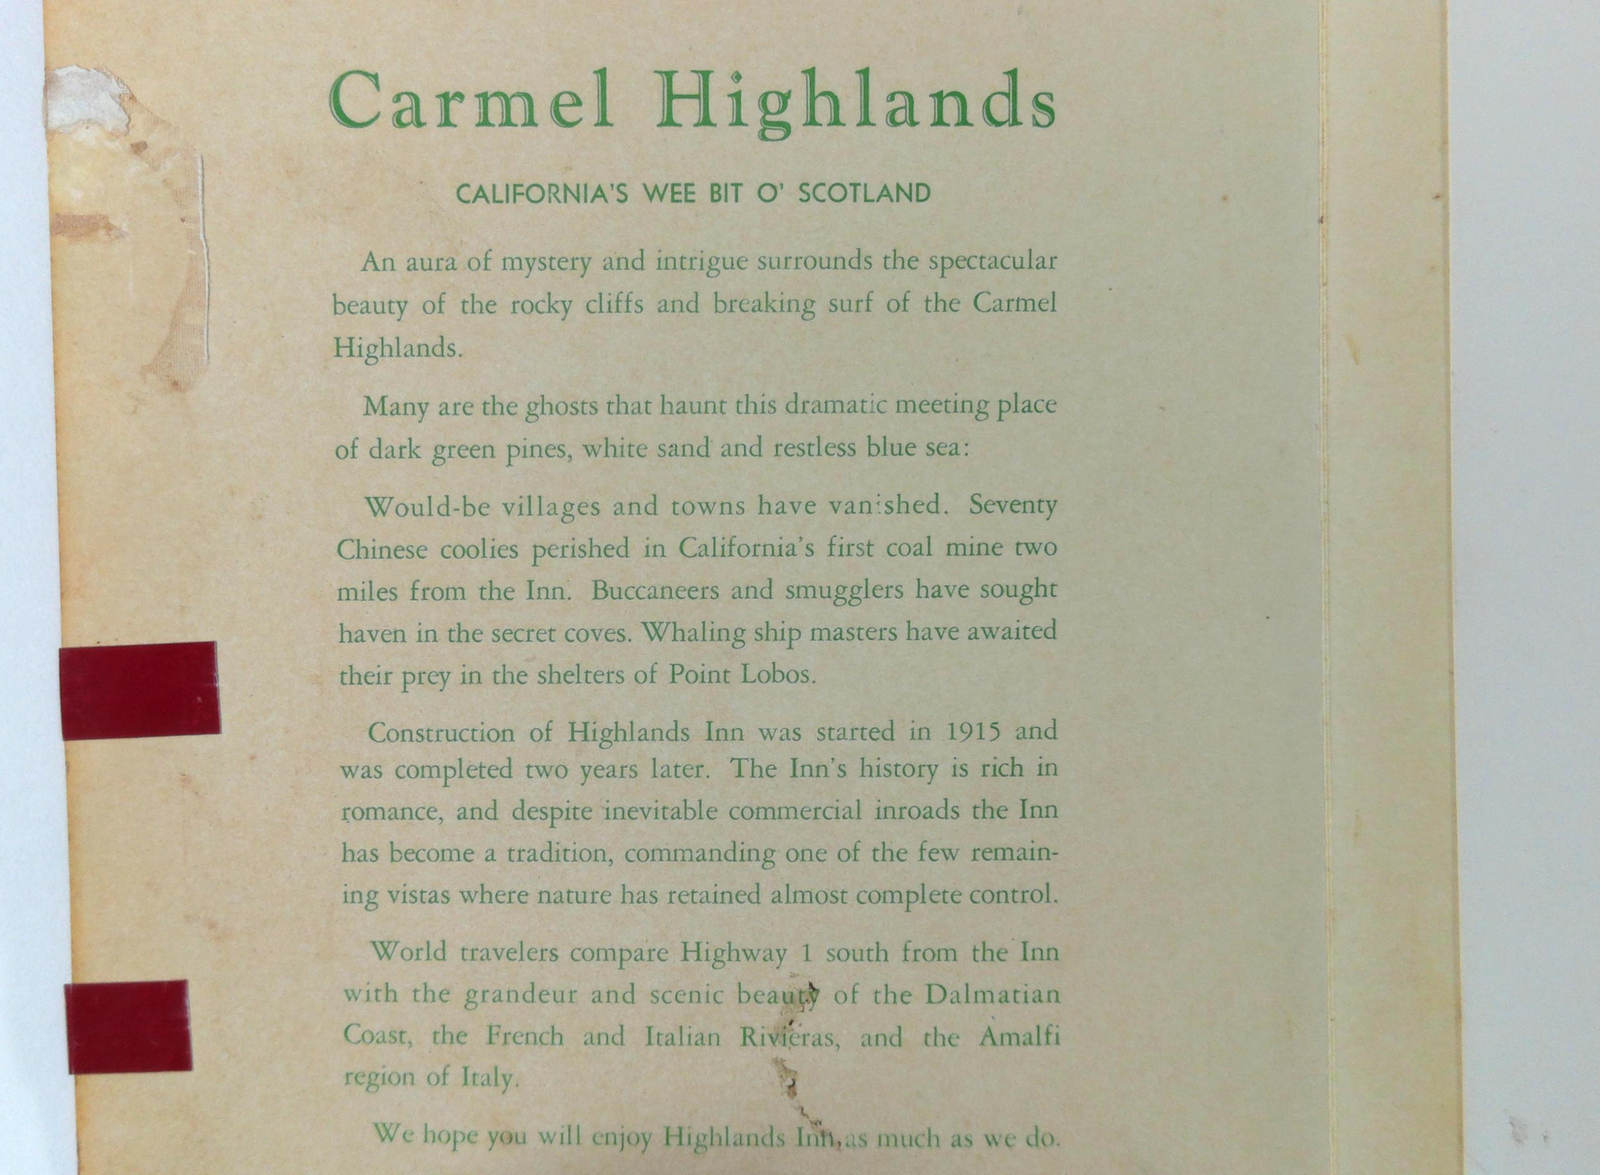 Carmel Highlands
CALIFORNIA'S WEE BIT O' SCOTLAND
An aura of mystery and intrigue surrounds the spectacular
beauty of the rocky cliffs and breaking surf of the Carmel
Highlands.
Many are the ghosts that haunt this dramatic meeting place
of dark green pines, white sand and restless blue sea:
Would-be villages and towns have vanished. Seventy
Chinese coolies perished in California's first coal mine two
miles from the Inn. Buccaneers and smugglers have sought
haven in the secret coves. Whaling ship masters have awaited
their prey in the shelters of Point Lobos.
Construction of Highlands Inn was started in 1915 and
was completed two years later. The Inn's history is rich in
romance, and despite inevitable commercial inroads the Inn
has become a tradition, commanding one of the few remain-
ing vistas where nature has retained almost complete control.
World travelers compare Highway 1 south from the Inn
with the grandeur and scenic beauty of the Dalmatian
Coast, the French and Italian Rivieras, and the Amalfi
region of Italy.
We hope you will enjoy Highlands Inn, as much as we do.